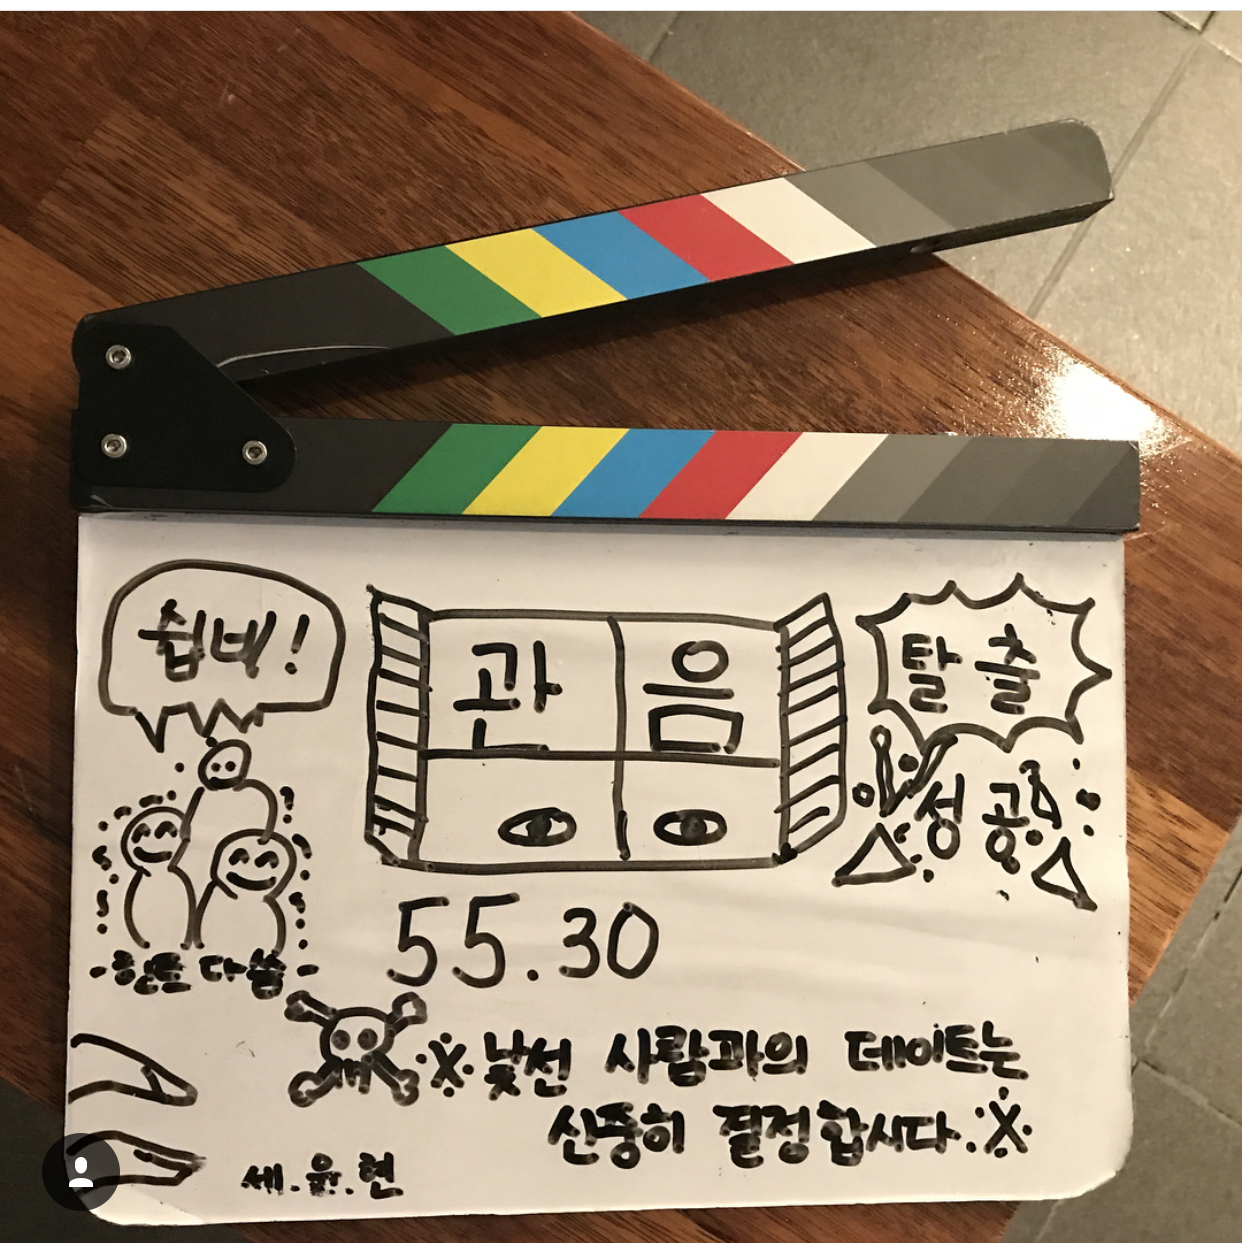 쉽네!
관음
탈출
성공
55.30
힌트 다씀
※낯선 사람과의 데이트는
신중히 결정합시다.※
세.윤.현